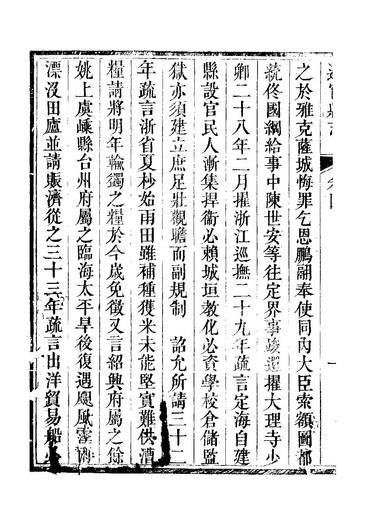 之於雅克薩城悔罪乞恩鵬翮奉使同內大臣索額圖都
統佟國綱給事中陳世安等往定界事竣還擢大理寺少
卿二十八年二月擢浙江巡撫二十九年疏言定海自建
縣設官民人漸集捍衛必賴城垣教化必資學校倉儲監
獄亦須建立庶足壯觀瞻而副規制 詔允所請三十二
年疏言浙省夏秒始雨田雖補種穫米未能堅實難供漕
糧請將明年輸蠲之糧於今歲免徵又言紹興府屬之餘
姚上虞嵊縣台州府屬之臨海太平旱後復遇颶風霪雨
漂沒田廬並請賑濟從之三十三年疏言出洋貿易船